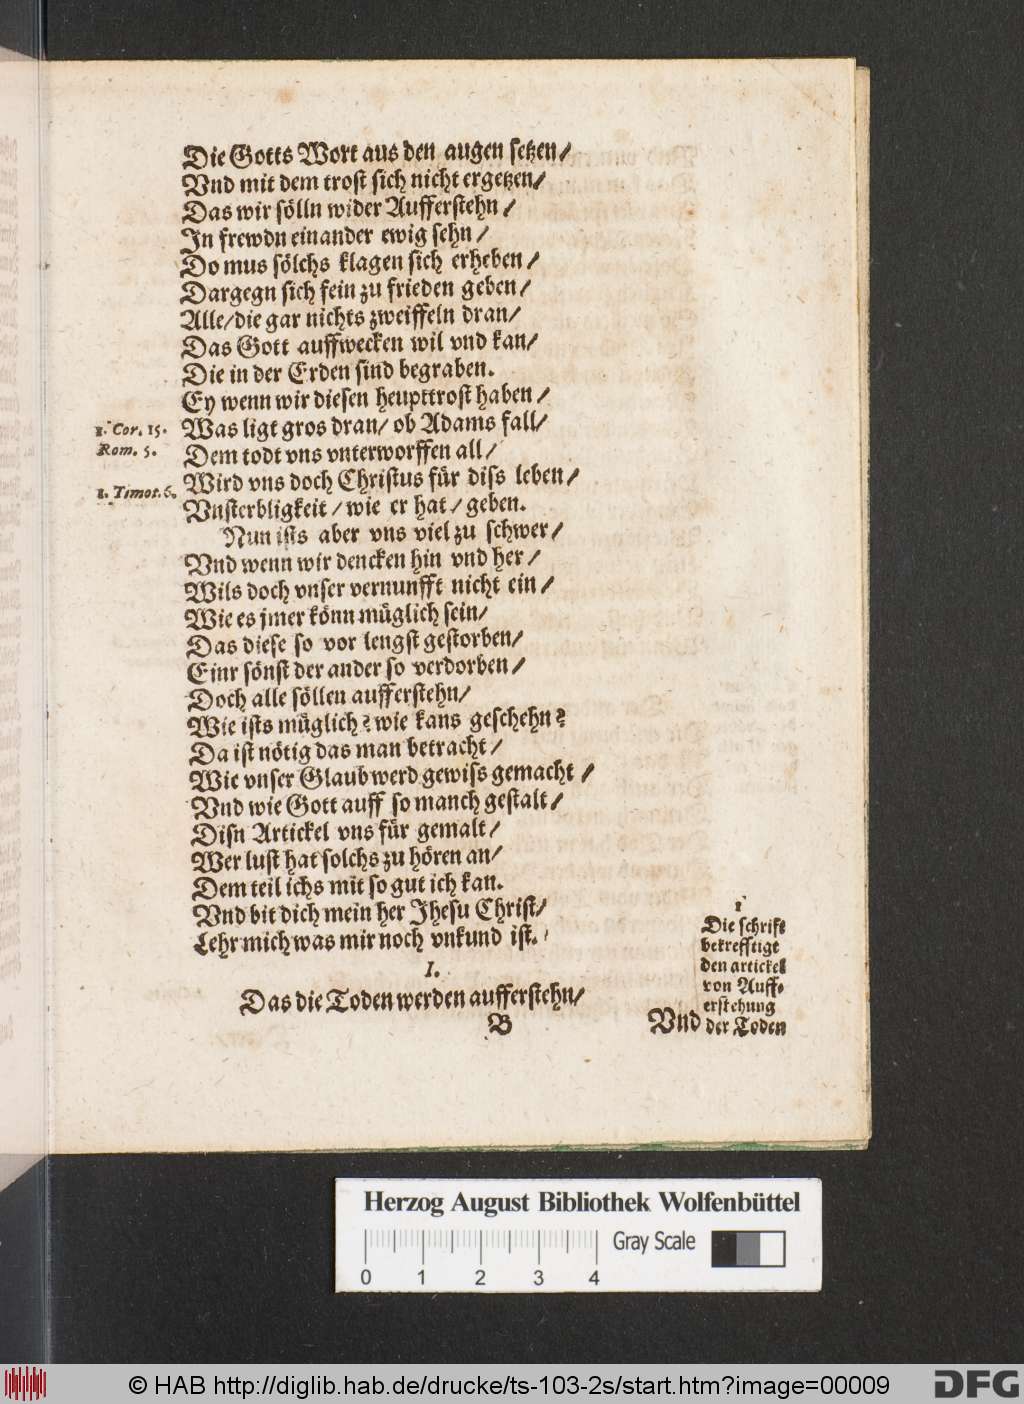 Die Gotts Wort aus den augen setzen/
Vnd mit dem trost sich nicht ergetzen/
Das wir sölln wider Aufferstehn/
In frewdn einander ewig sehn/
Do mus sölchs klagen sich erheben/
Dargegn sich fein zu frieden geben/
Alle/die gar nichts zweiffeln dran/
Das Gott auffwecken wil vnd kan/
Die in der Erden sind begraben.
Ey wenn wir diesen heupttrost haben/
1. Cor. 15. Was ligt gros dran/ ob Adams fall/
Rom. 5. Dem todt vns vnterworffen all/
Wird vns doch Christus für diss leben/
1. Timot. 6. Vnsterbligkeit/ wie er hat/ geben.
Nun ists aber vns viel zu schwer/
Vnd wenn wir dencken hin vnd her/
Wils doch vnser vernunfft nicht ein/
Wie es jmer könn müglich sein/
Das diese so vor lengst gestorben/
Einr sönst der ander so verdorben/
Doch alle söllen aufferstehn/
Wie ists müglich? wie kans geschehn?
Da ist nötig das man betracht/
Wie vnser Glaub werd gewiss gemacht/
Vnd wie Gott auff so manch gestalt/
Disn Artickel vns für gemalt/
Wer lust hat solchs zu hören an/
Dem teil ichs mit so gut ich kan.
Vnd bit dich mein her Jhesu Christ/
Lehr mich was mir noch vnkund ist.
I.
Das die Toden werden aufferstehn/
1
Die schrifft
bekrefftigt
den artickel
von Auff-
erstehung
der Toden
B
Vnd
Herzog August Bibliothek Wolfenbüttel
Gray Scale
0 1 2 3 4
© HAB http://diglib.hab.de/drucke/ts-103-2s/start.htm?image=00009
DFG